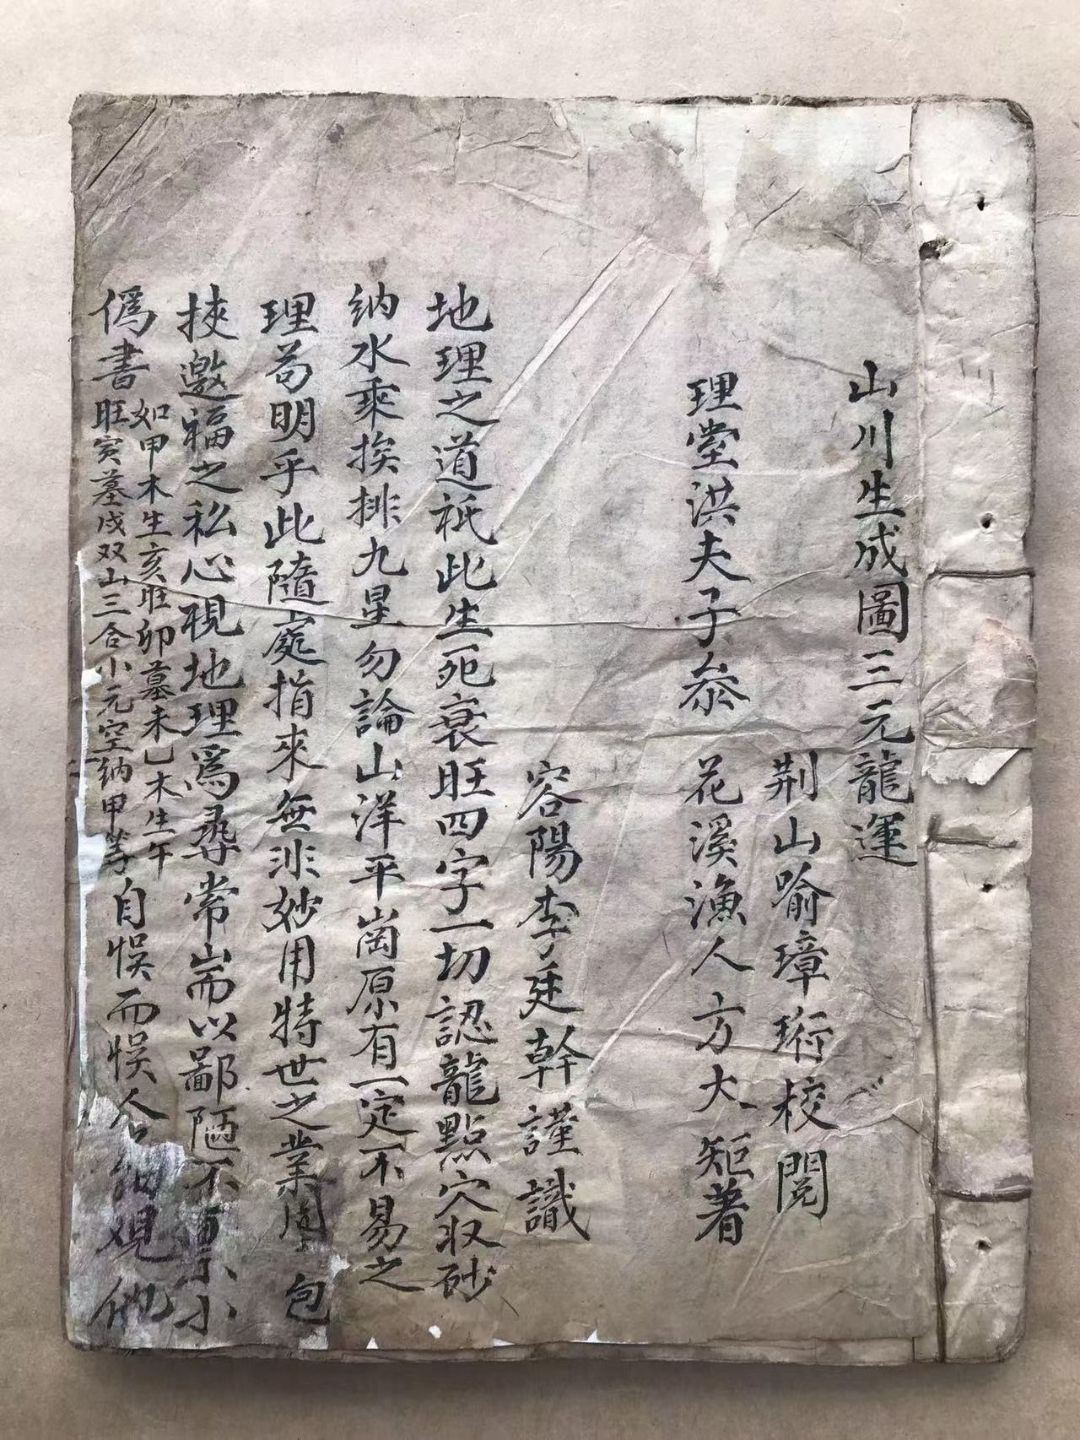 山川生成圖三元龍運
荆山喻璋珩校閱
理堂洪夫子叅 花溪漁人方大矩著
容陽李廷幹謹識
地理之道祇此生死衰旺四字一切認龍點穴収砂
納水乘挨排九星勿論山洋平崗原有一定不易之
理苟明乎此隨處指來無非妙用特世之業 包
挾邀福之私心視地理爲尋常耑以鄙陋不 小
僞書
如甲木生亥旺卯墓未乙木生午
旺寅墓戌双山三合小元空納甲等
自悞而悞人 觀他